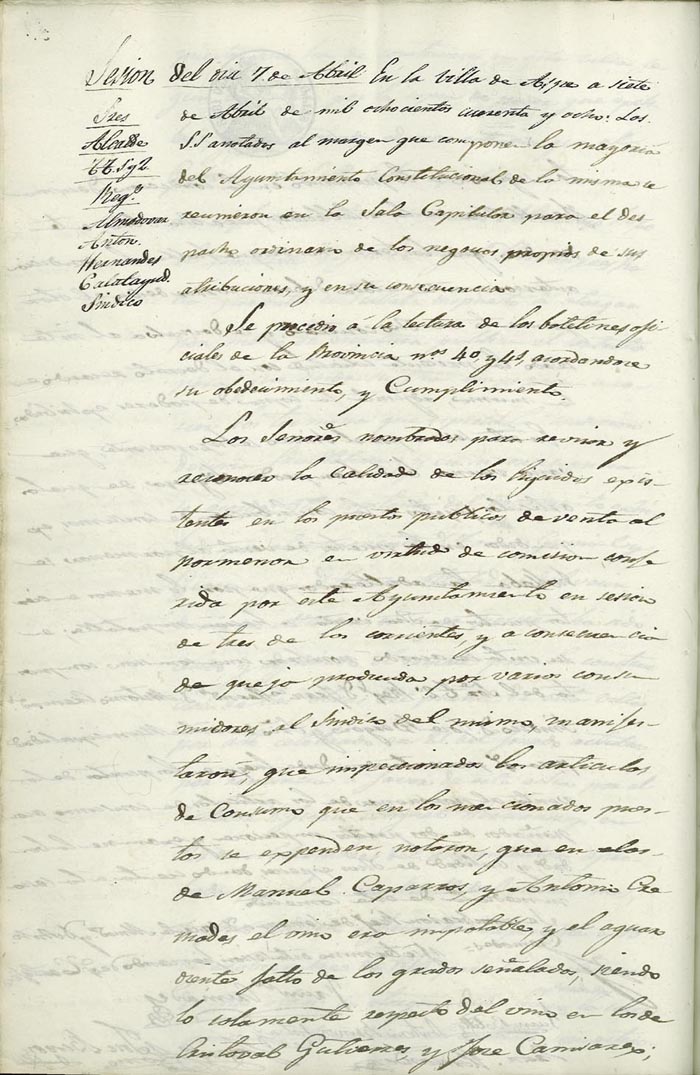 Sesion del dia 7 de Abril En la villa de Aspe a siete
de Abril de mil ochocientos cuarenta y ocho: Los
S.S. anotados al margen que componen la mayoria
del Ayuntamiento Constitucional de la misma se
reunieron en la Sala Capitular para el des
pacho ordinario de los negocios propios de sus
atribuciones, y en su consecuencia
Sres
Alcalde
TT. 1 y 2
Reg.s
Almodovar
Anton
Hernandes
Calatayud.
Sindico
Se procedio á la lectura de los boletines ofi
ciales de la Provincia nos 40, y 41, acordandose
su obedecimiento, y Cumplimiento.
Los Señores nombrados para revisar y
reconocer la calidad de los liquidos exis-
tentes en los puestos publicos de venta al
pormenor en virtud de comision confe
rida por este Ayuntamiento en sesion
de tres de los corrientes, y a consecuencia
de queja producida por varios consu
midores al Sindico del mismo, manifes-
taron, que inspeccionados los articulos
de Consumo que en los mencionados pues-
tos se expenden, notaron, que en elos-
de Manuel Caparros, y Antonio Cre
mades el vino era impotable y el aguar
diente falto de los grados señalados, siendo
lo solamente respecto del vino en los de
Cristoval Gutierres, y Jose Cañisares;